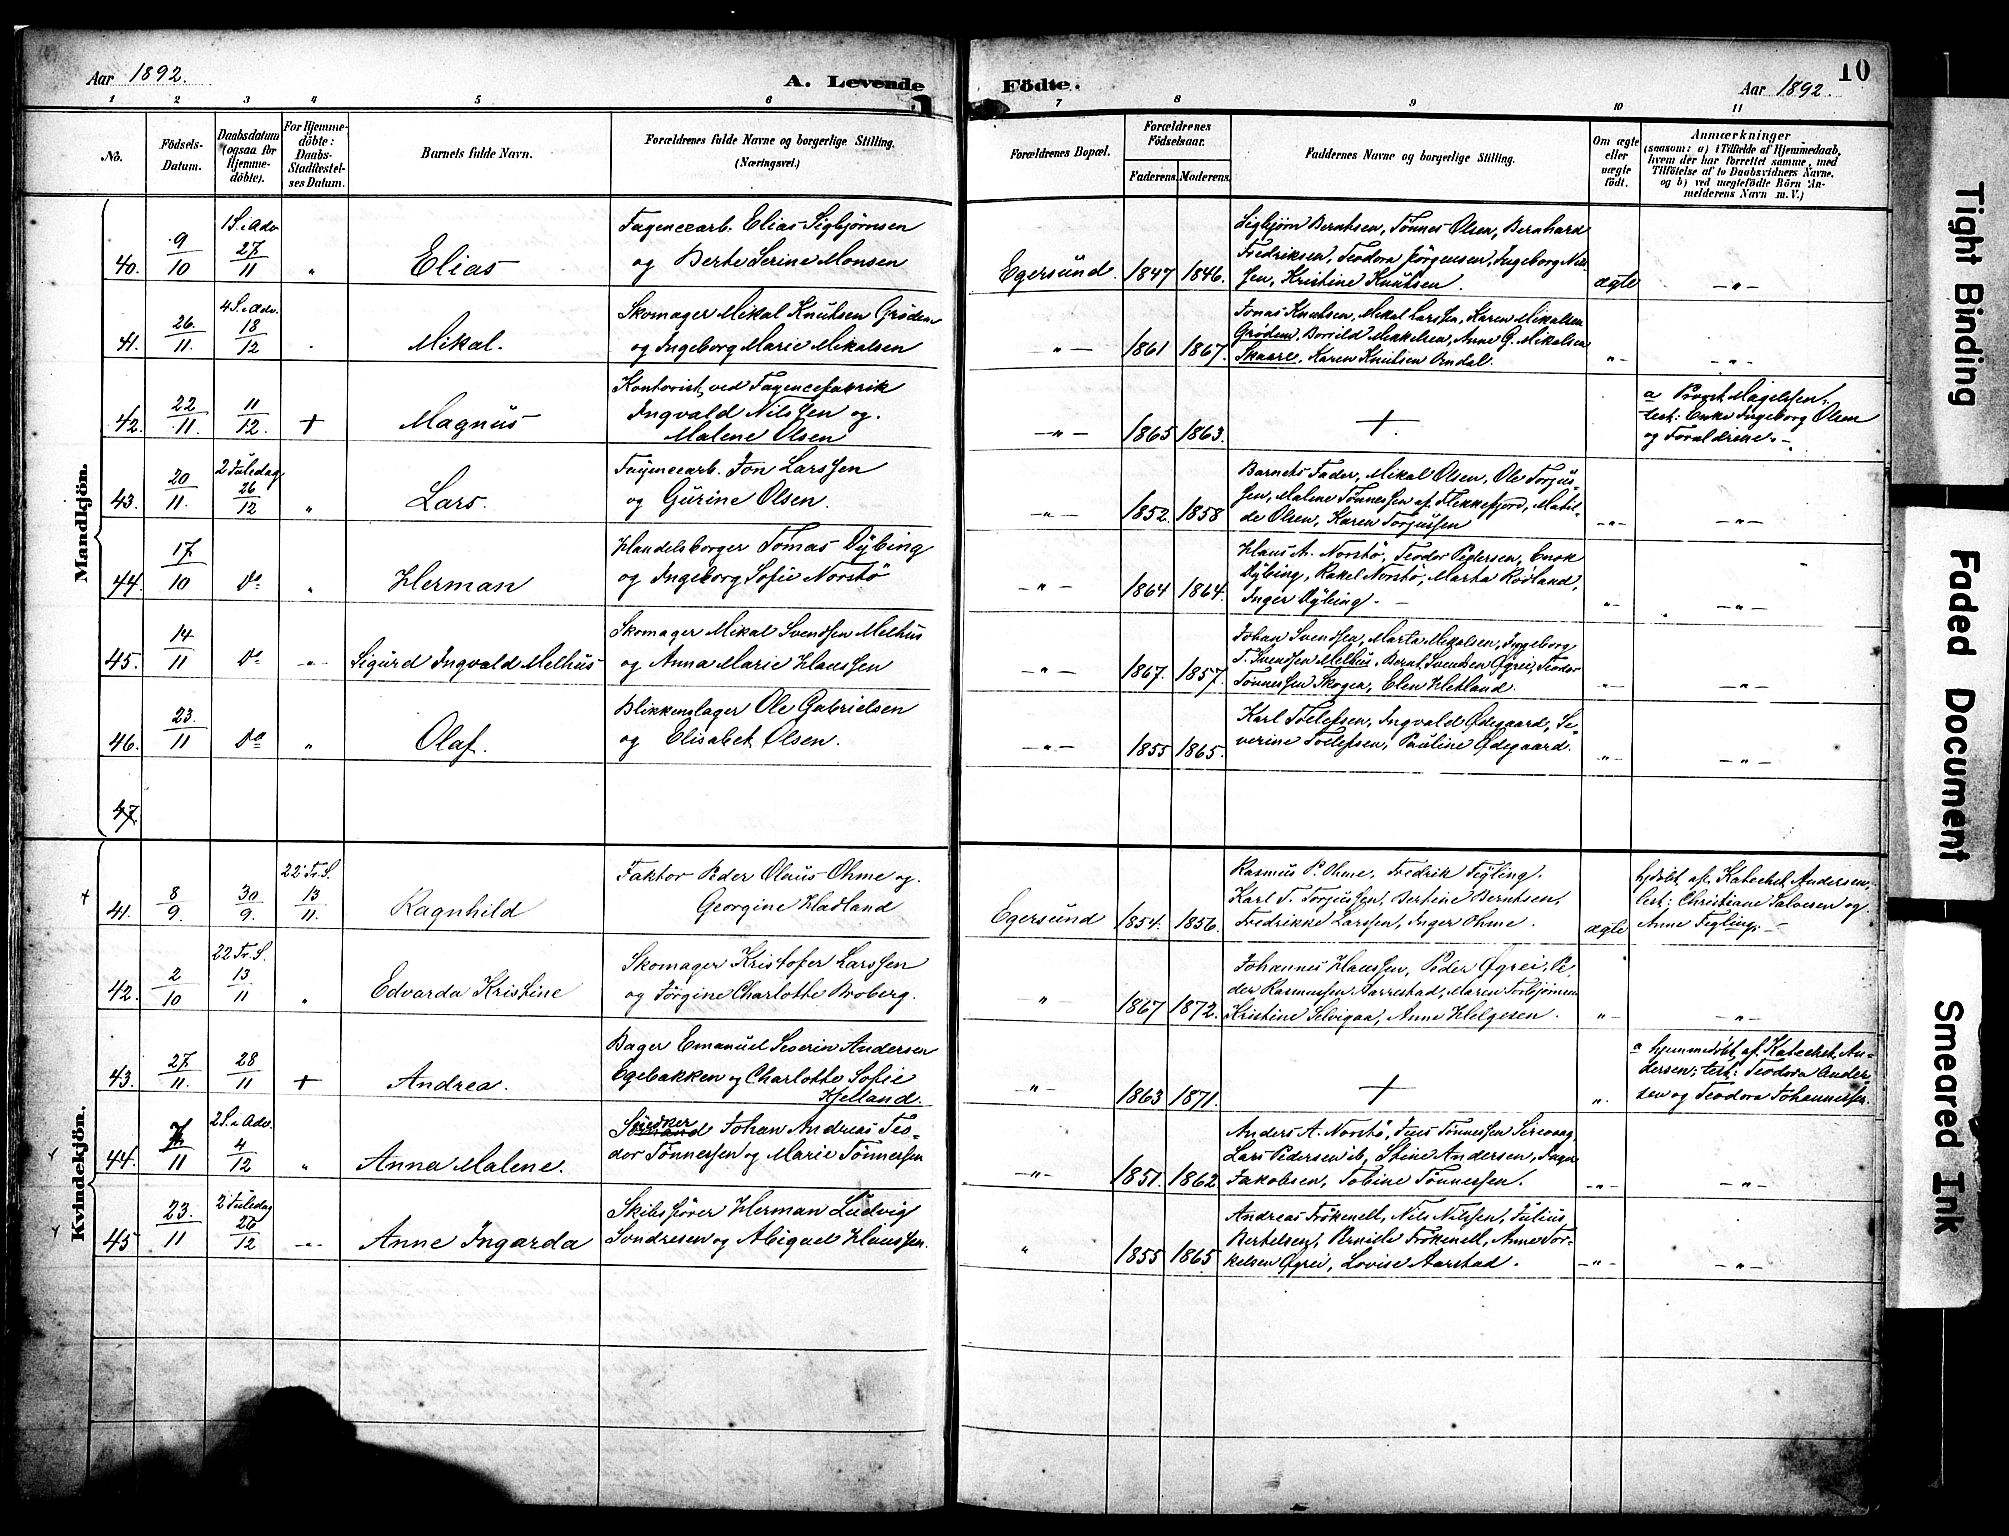 Aar 1892.
A. Levende
Födte.
Aar 1892.
10
1 2 3 4 5 6 7 8 9 10 11
No.
Födsels-
Datum.
Daabsdatum
(ogsaa for
Hjemme-
döbte).
For Hjemme-
döbte:
Daabs-
Stadfestel-
ses Datum.
Barnets fulde Navn.
Forældrenes fulde Navne og borgerlige Stilling.
(Næringsvei.)
Forældrenes Bopæl.
Forældrenes
Födselsaar.
Faderens. Moderens.
Faddernes Navne og borgerlige Stilling.
Om ægte
eller
uægte
födt.
Anmærkninger
(saasom: a) i Tilfælde af Hjemmedaab,
hvem der har forrettet samme, med
Tilföielse af to Daabsvidners Navne,
og b) ved uægtefödte Börn An-
melderens Navn m. V.)
Mandkjön.
40. 9/10 1 S. i Adv. 27/11 " Elias
Fayencearb. Elias Sigbjørnsen
og Berte Serine Monsen
Egersund. 1847 1846.
Sigbjørn Berntsen, Tønnes Olsen, Bernhard
Fredriksen, Teodora Jørgensen, Ingeborg Nils-
sen, Kristine Knutsen.
ægte — " —
41. 26./11. 4 S. i Adv. 18/12 . Mikal.
Skomager Mikal Knutsen Grødem
og Ingeborg Marie Mikalsen
— " — 1861 1867.
Jonas Knutsen, Mikal Larssen, Karen Mikalsen
Grødem, Borrild Mikkelsen, Anne G. Mikalsen
Skaare, Karen Knutsen Ørsdal.
" — — " —
42. 22/11. 11/12. + Magnus
Kontorist ved Fayencefabrik
Ingvald Nilssen og
Malene Olsen
— " — 1865 1863.
+.
a Provst Magelssen;
test: Enke Ingeborg Olsen
og Forældrene. —
43. 20/11. 2 Juledag 26/12 " Lars.
Fayencearb. Jon Larssen
og Gurine Olsen.
— " — 1852. 1858
Barnets Fader, Mikal Olsen, Ole Torjus-
sen, Malene Tønnessen af Flekkefjord, Matil-
de Olsen, Karen Torjussen
— " — — " —
44. 17./10 Do " Herman
Handelsborger Tomas Dybing
og Ingeborg Sofie Norstø
— " — 1864 1864.
Hans A. Norstø, Teodor Pedersen, Enok
Dybing, Rakel Norstø, Marta Rødland,
Inger Dybing. —
" — — " —
45. 14/11 Do — " — Sigurd Ingvald Melhus
Skomager Mikal Svendsen Melhus
og Anna Marie Hanssen
— " — 1867. 1857.
Johan Svendsen, Marta Mikalsen, Ingeborg
T. Svendsen Melhus, Bernt Svendsen Øgrei, Teodor
Tønnessen Skogen, Elen Hetland.
" — — " —
46. 23./11 Do " Olaf.
Blikkenslager Ole Gabrielsen
og Elisabet Olsen.
— " — 1855 1865.
Karl Toelefsen, Ingvald Ødegaard, Se-
verine Toelefsen, Pauline Ødegaard.
" — — " —
47.
Kvindekjön.
41. 8/9. 30/9. 22 Tr. S. 13/11. Ragnhild
Faktor Peder Olaus Ohme og
Georgine Hadland
Egersund 1854. 1856.
Rasmus P. Ohme, Fredrik Feyling,
Karl T. Torjussen, Bertine Berntsen,
Fredrikke Larssen, Inger Ohme.
ægte
hjdøbt af Kateket Andersen,
test: Christiane Salvesen og
Anne Feyling. —
42. 2/10 22 Tr. S. 13/11 " Edvarda Kristine
Skomager Kristofer Larssen
og Jørgine Charlotte Broberg.
" 1867 1872.
Johannes Hanssen, Peder Øgrei, Pe-
der Rasmussen Aarrestad, Maren Torbjørnsen
Kristine Selvigaa, Anne Helgesen.
" — " —
43. 27./11. 28/11 + Andrea.
Bager Emanuel Severin Andersen
Egebakken og Charlotte Sofie
Kjelland.
— " — 1863 1871.
+
".
a hjemmedøbt af Kateket An-
dersen; test: Teodora Ander-
sen og Teodora Johannessen.
44. 7/11 2 S. i Adv. 4/12 " Anna Malene.
Johan Andreas Teo-
dor Tønnessen og Marie Tønnessen
— " — 1851. 1862
Anders A. Norstø, Jens Tønnessen Sirevaag,
Lars Pedersen ib, Stine Andersen, Inger
Jakobsen, Tobine Tønnessen.
— " — — " —
45 23./11 2 Juledag 26/12 — " — Anne Ingarda
Skibsfører Herman Ludvig
Sondresen og Abigael Hanssen.
" 1855 1865
Andreas Frøkenell, Nils Nilssen, Julius
Bertelsen, Bruille Frøkenell, Anne Tor-
kelsen Øgrei, Lovise Aarstad.
— " — — " —
Tight Binding
Faded Document
Smeared Ink